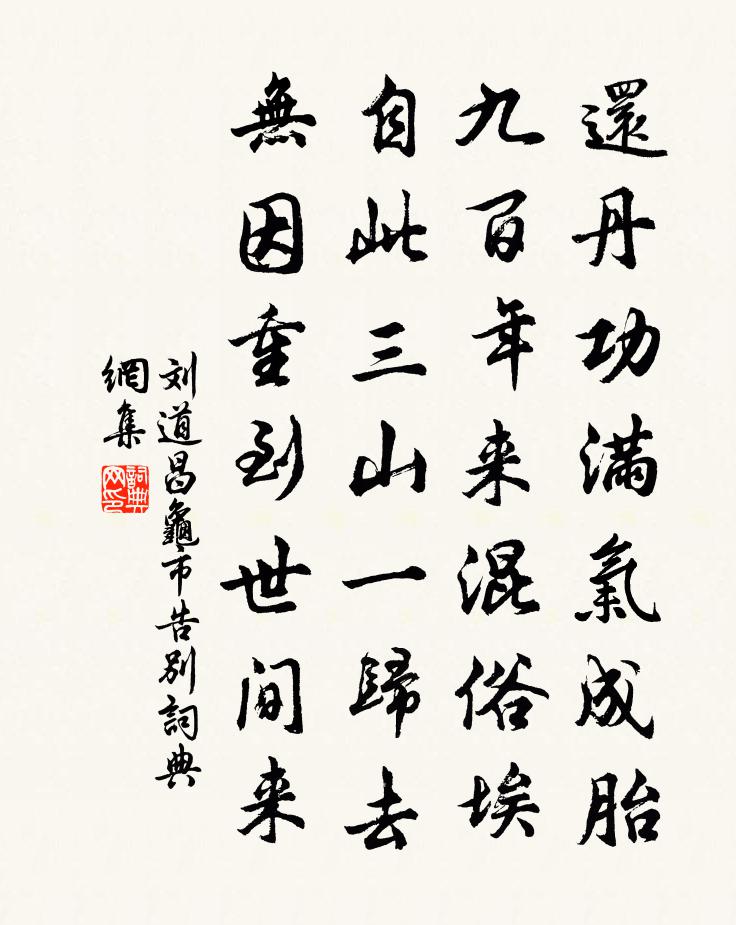 還丹功滿氣成胎
九百年来混俗埃
自此三山一歸去
無因重到世间来
刘道昌龜市告别詞典
網集
詞典
网印